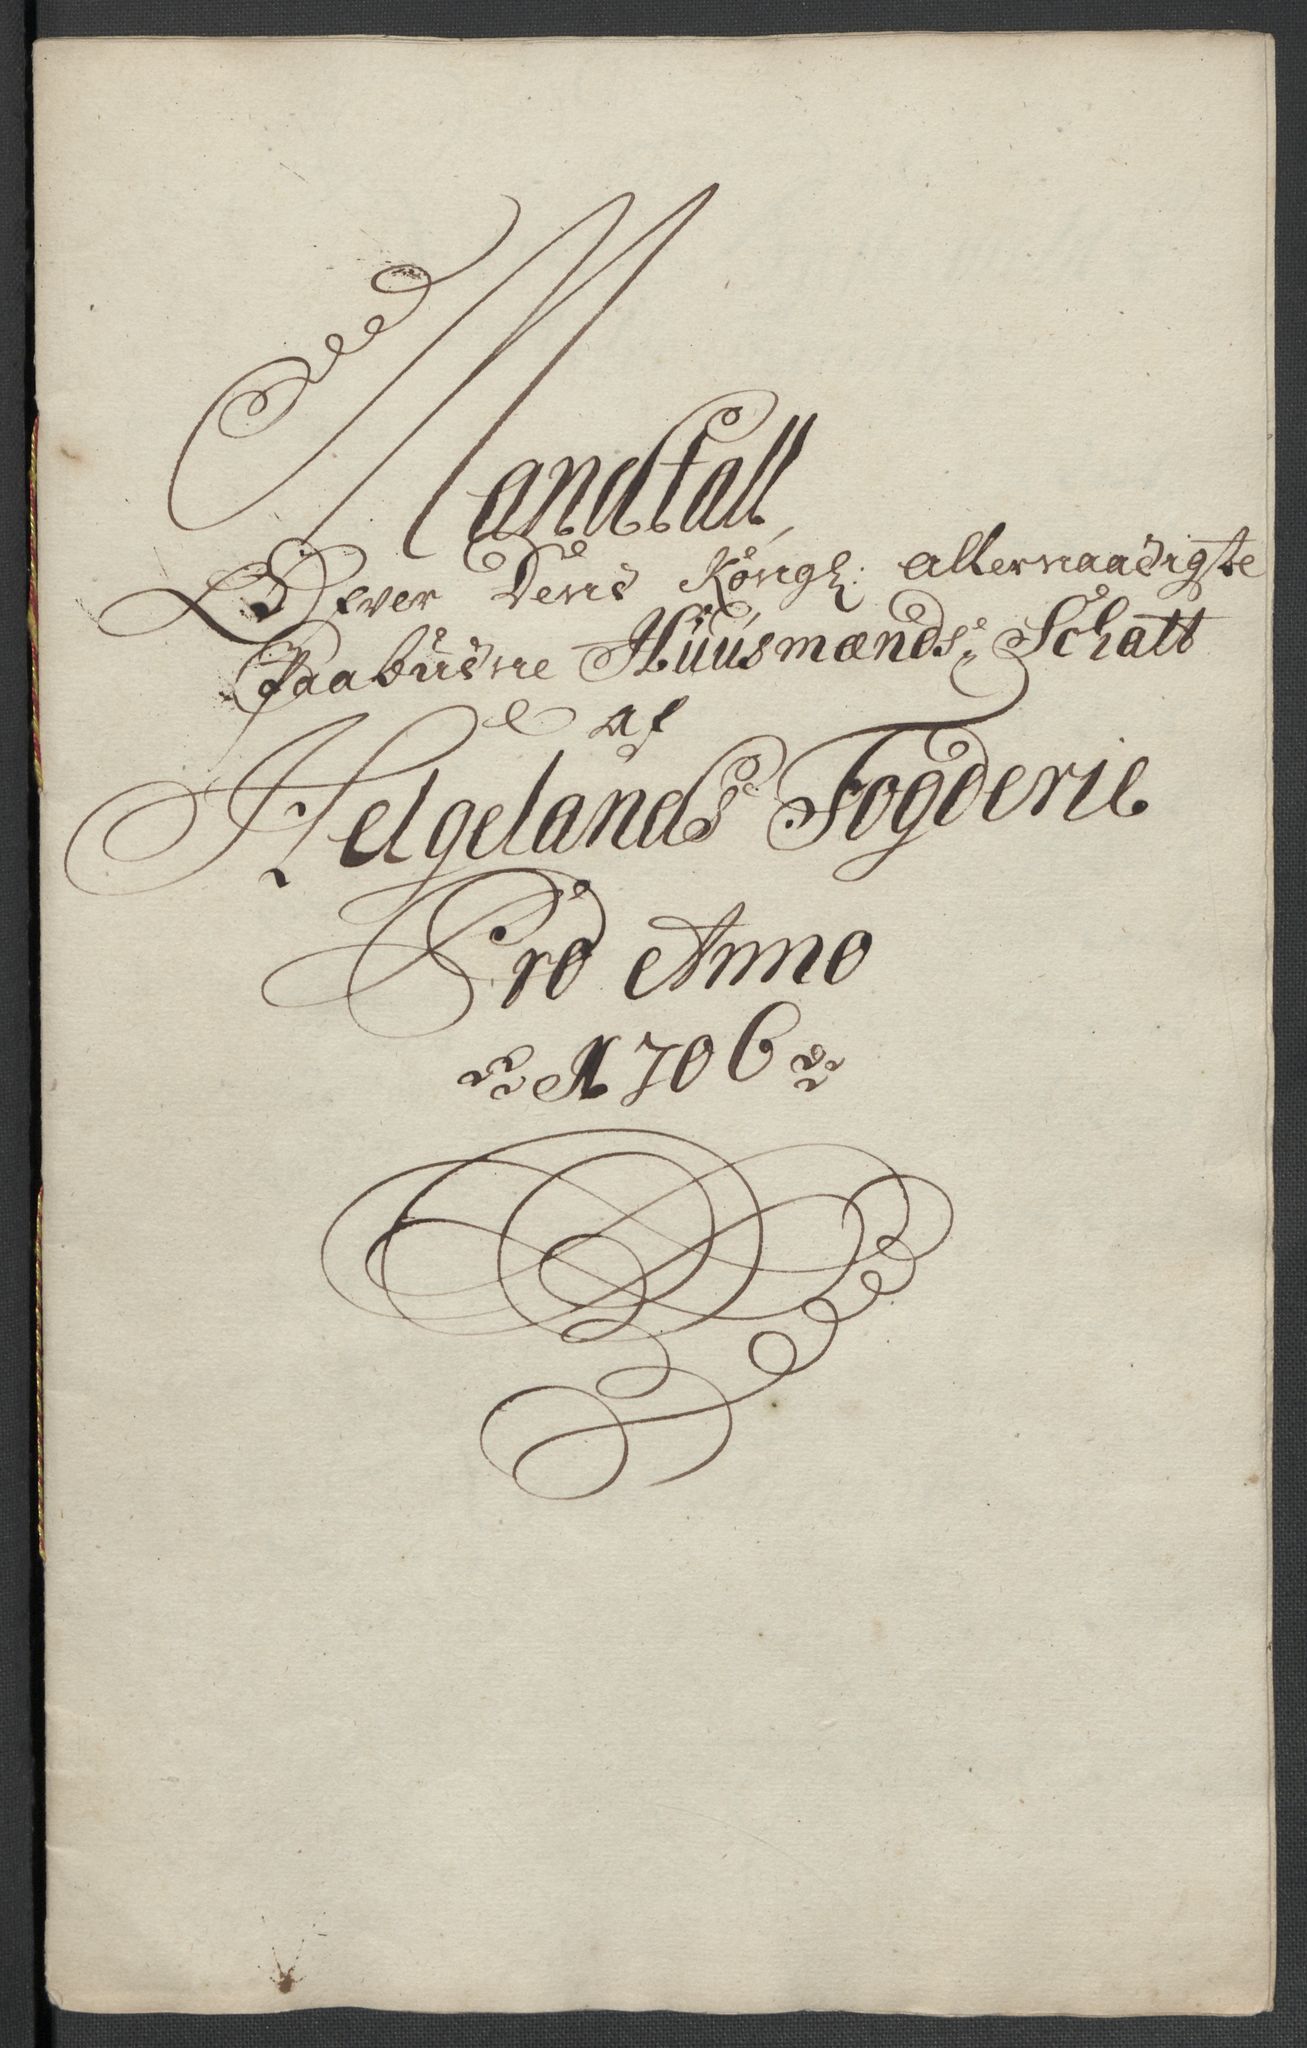 Mandtall
Ofver Dend Kongl: allernaadigste
Paabudne Huusmænds Schatt
af
Helgelands Fogderie
Pro Anno
1706